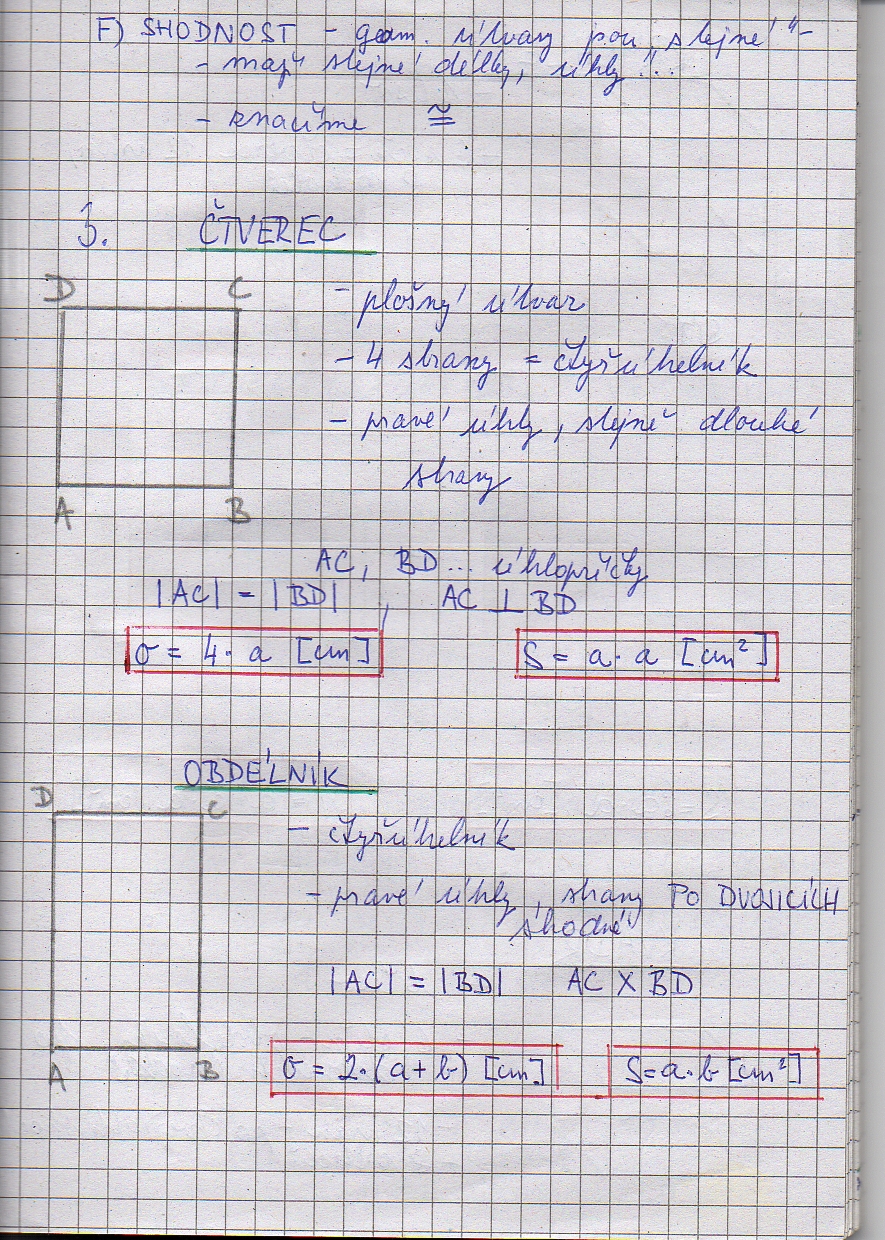 F) SHODNOST - geom. útvary jsou „stejné"-
- mají stejné délky, úhly...
- značíme ≅
3. ČTVEREC
D C
- plošný útvar
- 4 strany = čtyřúhelník
- pravé úhly, stejně dlouhé
strany
A B
AC, BD... úhlopříčky
|AC| = |BD| , AC ⊥ BD
σ = 4 · a [cm] S = a · a [cm²]
OBDÉLNÍK
D C
- čtyřúhelník
- pravé úhly, strany PO DVOJICÍCH
shodné
|AC| = |BD| AC X BD
A B
σ = 2·(a+b) [cm] S=a·b [cm²]